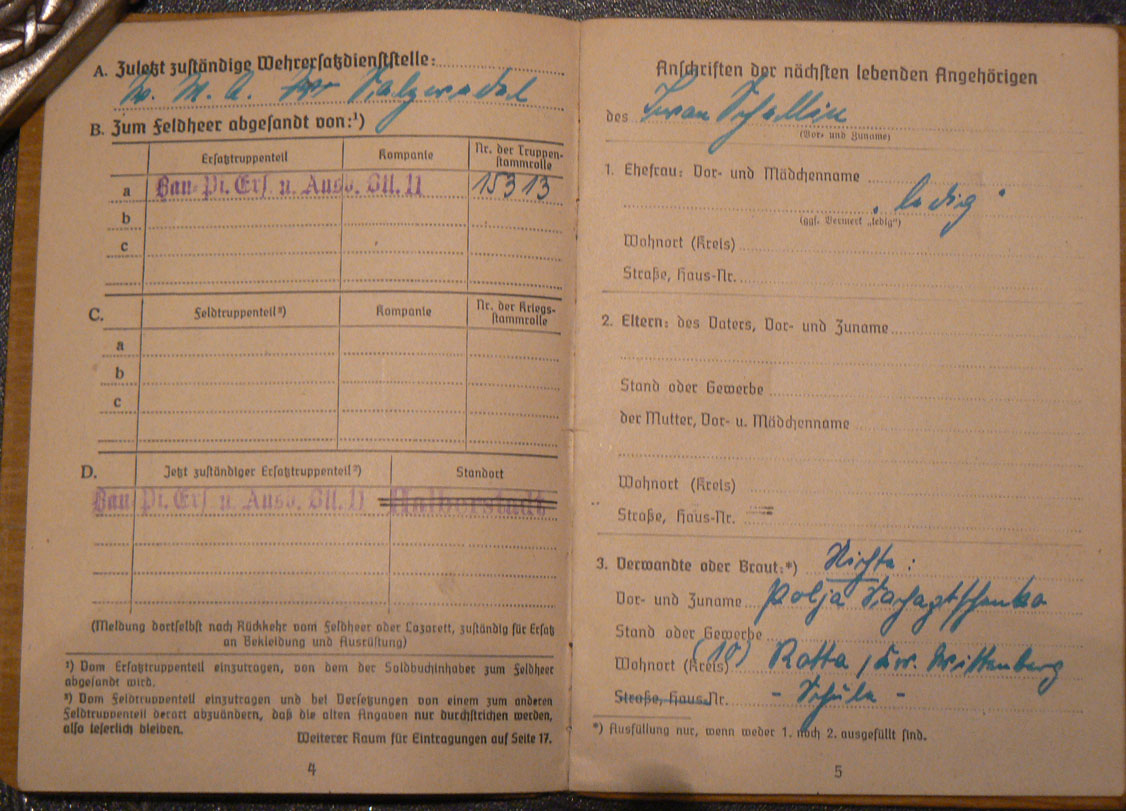 A. Zuletzt zuständige Wehrersatzdienststelle:
W. M. A. Salzwedel
B. Zum Feldheer abgesandt von:¹)
Ersatztruppenteil Kompanie Nr. der Truppen-
stammrolle
a Bau-Pi. Ers. u. Ausb. Btl. 11 15313
b
c
C. Feldtruppenteil²) Kompanie Nr. der Kriegs-
stammrolle
a
b
c
D. Jetzt zuständiger Ersatztruppenteil²) Standort
Bau-Pi. Ers. u. Ausb. Btl. 11 Halberstadt
(Meldung dortselbst nach Rückkehr vom Feldheer oder Lazarett, zuständig für Ersatz
an Bekleidung und Ausrüstung)
¹) Vom Ersatztruppenteil einzutragen, von dem der Soldbuchinhaber zum Feldheer
abgesandt wird.
²) Vom Feldtruppenteil einzutragen und bei Versetzungen von einem zum anderen
Feldtruppenteil derart abzuändern, daß die alten Angaben nur durchstrichen werden,
also leserlich bleiben.
Weiterer Raum für Eintragungen auf Seite 17.
4
Anschriften der nächsten lebenden Angehörigen
des Iwan
(Vor- und Zuname)
1. Ehefrau: Vor- und Mädchenname
"ledig"
(ggf. Vermerk „ledig")
Wohnort (Kreis)
Straße, Haus-Nr.
2. Eltern: des Vaters, Vor- und Zuname
Stand oder Gewerbe
der Mutter, Vor- u. Mädchenname
Wohnort (Kreis)
Straße, Haus-Nr.
3. Verwandte oder Braut:*) Nichte:
Vor- und Zuname Polja
Stand oder Gewerbe
Wohnort (Kreis) (10) Rotta, Kr. Wittenberg
Straße, Haus-Nr. - Schule -
*) Ausfüllung nur, wenn weder 1. noch 2. ausgefüllt sind.
5